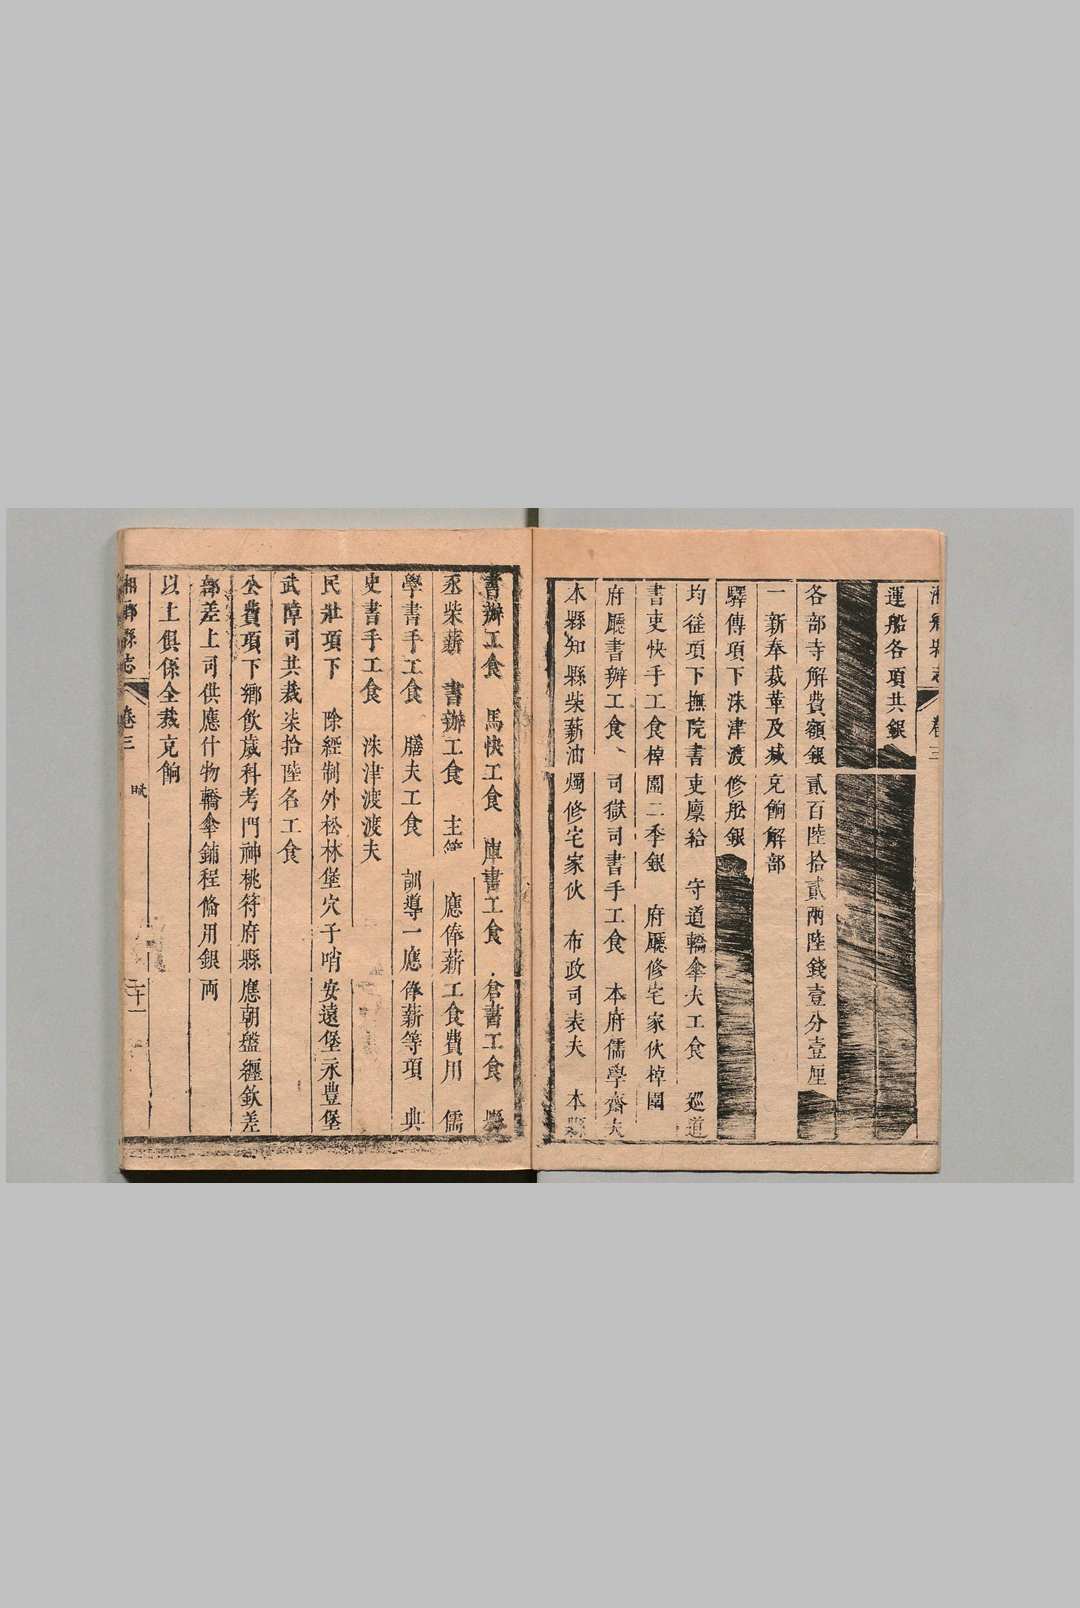 湘鄉縣志 卷三
運船各項共銀
各部寺解費額銀貳百陸拾貳兩陸錢壹分壹厘
一新奉裁革及减充餉解部
驛傳項下洙津渡修舩銀
均徭項下撫院書吏廩給 守道轎傘夫工食 廵道
書吏快手工食棹圍二季銀 府廳修宅家伙棹圍
府廳書辦工食、司獄司書手工食 本府儒學齋夫
本縣知縣柴薪油燭修宅家伙 布政司表夫 本縣
書辦工食 馬快工食 庫書工食 倉書工食 縣
丞柴薪 書辦工食 主簿 應俸薪工食費用 儒
學書手工食 膳夫工食 訓導一應俸薪等項 典
史書手工食 洙津渡渡夫
民壯項下 除經制外松林堡穴子哨安遠堡永豐堡
武障司共裁柒拾陸名工食
公費項下鄉飲歲科考門神桃符府縣應朝盤纏欽差
部差上司供應什物轎傘鋪程俻用銀兩
以上俱係全裁充餉
湘鄉縣志 卷三 賦 二十一